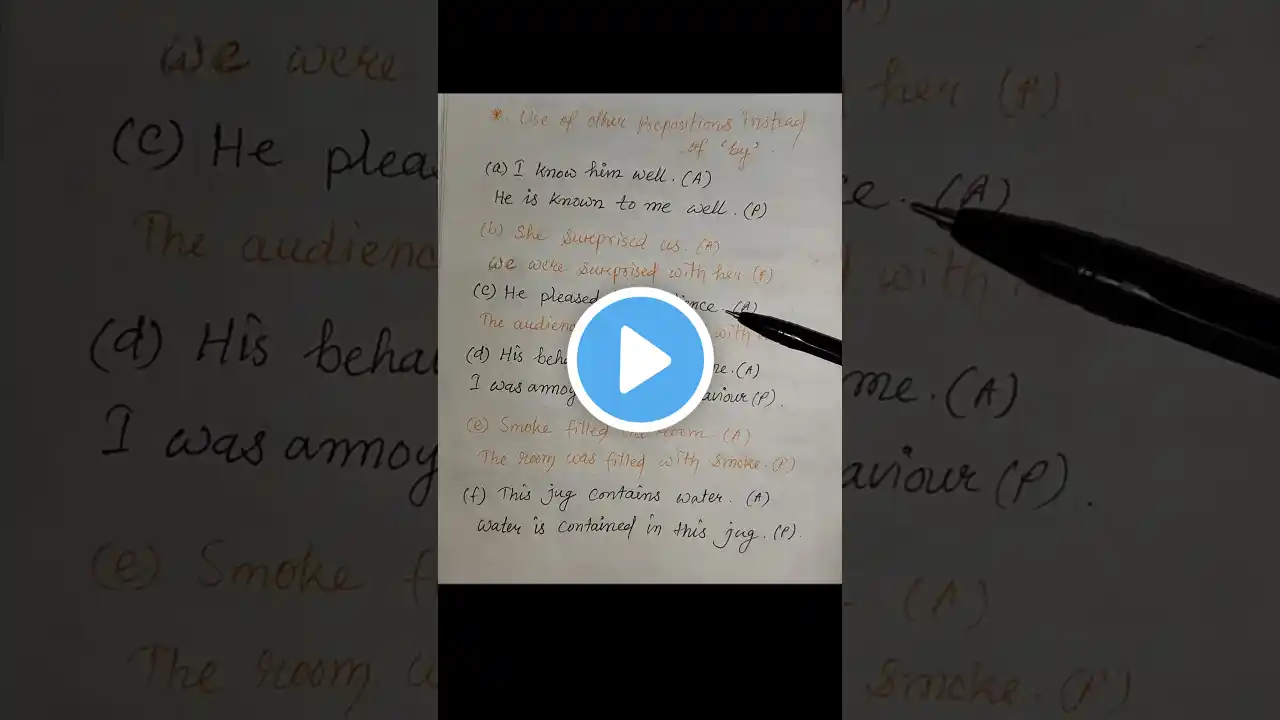 *. Use of other Prepositions instead
of 'by'.
(a) I know him well. (A)
He is known to me well. (P)
(b) She surprised us. (A)
We were surprised with her (P)
(c) He pleased ence. (A)
The audien with
(d) His beha me. (A)
I was annoy aviour (P).
(e) Smoke filled the room. (A)
The room was filled with smoke. (P)
(f) This jug contains water. (A)
Water is contained in this jug. (P).